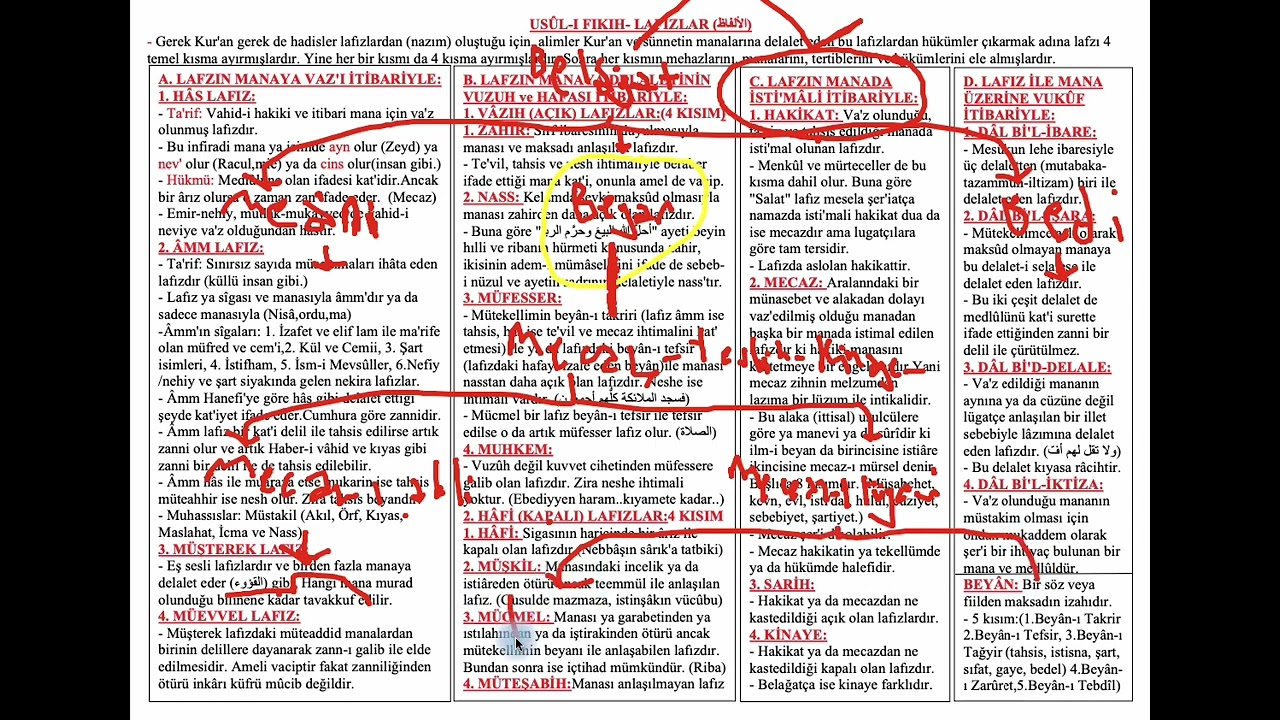 USÛL-I FIKIH- LAFIZLAR (الألفاظ)
- Gerek Kur'an gerek de hadisler lafızlardan (nazım) oluştuğu için, alimler Kur'an ve sünnetin manalarına delalet eden bu lafızlardan hükümler çıkarmak adına lafzı 4
temel kısma ayırmışlardır. Yine her bir kısmı da 4 kısma ayırmışlardır. her kısmın mehazlarını, manalarını, tertiblerini ve hükümlerini ele almışlardır.
A. LAFZIN MANAYA VAZ'I İTİBARİYLE:
1. HÂS LAFIZ:
- Ta'rif: Vahid-i hakiki ve itibari mana için va'z
olunmuş lafızdır.
- Bu infiradi mana ya içinde ayn olur (Zeyd) ya
nev' olur (Racul, ) ya da cins olur(insan gibi.)
- Hükmü: olan ifadesi kat'idir.Ancak
bir ârız olursa o zaman zan ifade eder. (Mecaz)
- Emir-nehiy, vahid-i
neviye va'z olduğundan hastır.
2. ÂMM LAFIZ:
- Ta'rif: Sınırsız sayıda ihâta eden
lafızdır (küllü insan gibi.)
- Lafız ya sîgası ve manasıyla âmm'dır ya da
sadece manasıyla (Nisâ,ordu,ma)
-Âmm'ın sîgaları: 1. İzafet ve elif lam ile ma'rife
olan müfred ve cem'i,2. Kül ve Cemii, 3. Şart
isimleri, 4. İstifham, 5. İsm-i Mevsûller, 6.Nefiy
/nehiy ve şart siyakında gelen nekira lafızlar.
- Âmm Hanefi'ye göre hâs gibi delalet ettiği
şeyde kat'iyet ifade eder.Cumhura göre zannidir.
- Âmm lafız bir kat'i delil ile tahsis edilirse artık
zanni olur ve artık Haber-i vâhid ve kıyas gibi
zanni bir ile de tahsis edilebilir.
- Âmm hâs ile mukarin ise tahsis
müteahhir ise nesh olur. Zira tahsis beyandır.
- Muhassıslar: Müstakil (Akıl, Örf, Kıyas,
Maslahat, İcma ve Nass)
3. MÜŞTEREK LAFIZ:
- Eş sesli lafızlardır ve birden fazla manaya
delalet eder gibi. Hangi mana murad
olunduğu bilinene kadar tavakkuf edilir.
4. MÜEVVEL LAFIZ:
- Müşterek lafızdaki müteaddid manalardan
birinin delillere dayanarak zann-ı galib ile elde
edilmesidir. Ameli vaciptir fakat zanniliğinden
ötürü inkârı küfrü mûcib değildir.
B. LAFZIN MANAYA DELALETİNİN
VUZUH ve HAFASI İTİBARİYLE:
1. VÂZIH (AÇIK) LAFIZLAR:(4 KISIM)
1. ZAHİR: Sırf ibaresinin duyulmasıyla
manası ve maksadı anlaşılan lafızdır.
- Te'vil, tahsis ve nesh ihtimaliyle beraber
ifade ettiği mana kat'i, onunla amel de vacip.
2. NASS: Kelamda sevk-i maksûd olmasıyla
manası zahirden daha açık olan lafızdır.
- Buna göre " " ayeti beyin
hılli ve ribanın hürmeti konusunda zahir,
ikisinin adem-i mümâselesini ifade de sebeb-
i nüzul ve ayetin delaletiyle nass'tır.
3. MÜFESSER:
- Mütekellimin beyân-ı takriri (lafız âmm ise
tahsis, hâs ise te'vil ve mecaz ihtimalini kat'
etmesi) ile ya da lafızdaki beyân-ı tefsir
(lafızdaki hafayı izale eden beyân)ile manası
nasstan daha açık olan lafızdır. Neshe ise
ihtimali vardır.
- Mücmel bir lafız beyân-ı tefsir ile tefsir
edilse o da artık müfesser lafız olur. (الصلاة)
4. MUHKEM:
- Vuzûh değil kuvvet cihetinden müfessere
galib olan lafızdır. Zira neshe ihtimali
yoktur. (Ebediyyen haram..kıyamete kadar..)
2. HÂFİ (KAPALI) LAFIZLAR:4 KISIM
1. HÂFİ: Sigasının haricinde bir ârız ile
kapalı olan lafızdır. (Nebbâşın sârık'a tatbiki)
2. MÜŞKİL: Manasındaki incelik ya da
istiâreden ötürü ancak teemmül ile anlaşılan
lafız. (Gusulde mazmaza, istinşâkın vücûbu)
3. MÜCMEL: Manası ya garabetinden ya
ıstılahından ya da iştirakinden ötürü ancak
mütekellimin beyanı ile anlaşabilen lafızdır.
Bundan sonra ise içtihad mümkündür. (Riba)
4. MÜTEŞABİH:Manası anlaşılmayan lafız
C. LAFZIN MANADA
İSTİ'MÂLİ İTİBARİYLE:
1. HAKİKAT: Va'z olunduğu,
tayin ve tahsis edildiği manada
isti'mal olunan lafızdır.
- Menkûl ve mürteceller de bu
kısma dahil olur. Buna göre
"Salat" lafız mesela şer'iatça
namazda isti'mali hakikat dua da
ise mecazdır ama lugatçılara
göre tam tersidir.
- Lafızda aslolan hakikattir.
2. MECAZ: Aralarındaki bir
münasebet ve alakadan dolayı
vaz'edilmiş olduğu manadan
başka bir manada istimal edilen
lafızdır ki hakiki manasını
kastetmeye bir engel vardır. Yani
mecaz zihnin melzumdan
lazıma bir lüzum ile intikalidir.
- Bu alaka (ittisal) usulcülere
göre ya manevi ya da sûrîdir ki
ilm-i beyan da birincisine istiâre
ikincisine mecaz-ı mürsel denir.
Başlıca 8 kısımdır. (Müşabehet,
kevn, evl, isti'dad, hulul, cüziyet,
sebebiyet, şartiyet.)
- Mecaz şer'i de olabilir.
- Mecaz hakikatin ya tekellümde
ya da hükümde halefidir.
3. SARİH:
- Hakikat ya da mecazdan ne
kastedildiği açık olan lafızlardır.
4. KİNAYE:
- Hakikat ya da mecazdan ne
kastedildiği kapalı olan lafızdır.
- Belağatça ise kinaye farklıdır.
D. LAFIZ İLE MANA
ÜZERİNE VUKÛF
İTİBARİYLE:
1. DÂL Bİ'L-İBARE:
- Mesukun lehe ibaresiyle
üç delaletten (mutabaka-
tazammun-iltizam) biri ile
delalet eden lafızdır.
2. DÂL Bİ'L-İŞARA:
- Mütekellimce olarak
maksûd olmayan manaya
bu delalet-i selase ile
delalet eden lafızdır.
- Bu iki çeşit delalet de
medlûlünü kat'i surette
ifade ettiğinden zanni bir
delil ile çürütülmez.
3. DÂL Bİ'D-DELALE:
- Va'z edildiği mananın
aynına ya da cüzüne değil
lügatçe anlaşılan bir illet
sebebiyle lâzımına delalet
eden lafızdır. (ولا تقل لهم أف)
- Bu delalet kıyasa râcihtir.
4. DÂL Bİ'L-İKTİZA:
- Va'z olunduğu mananın
müstakim olması için
ondan mukaddem olarak
şer'i bir ihtiyaç bulunan bir
mana ve medlûldür.
BEYÂN: Bir söz veya
fiilden maksadın izahıdır.
- 5 kısım:(1.Beyân-ı Takrir
2.Beyân-ı Tefsir, 3.Beyân-ı
Tağyir (tahsis, istisna, şart,
sıfat, gaye, bedel) 4.Beyân-
ı Zarûret,5.Beyân-ı Tebdîl)
Belagat
Beyan
Bedi
Mecaz - - Kinaye
Mecaz-ı akli
Mecaz-ı lügavi